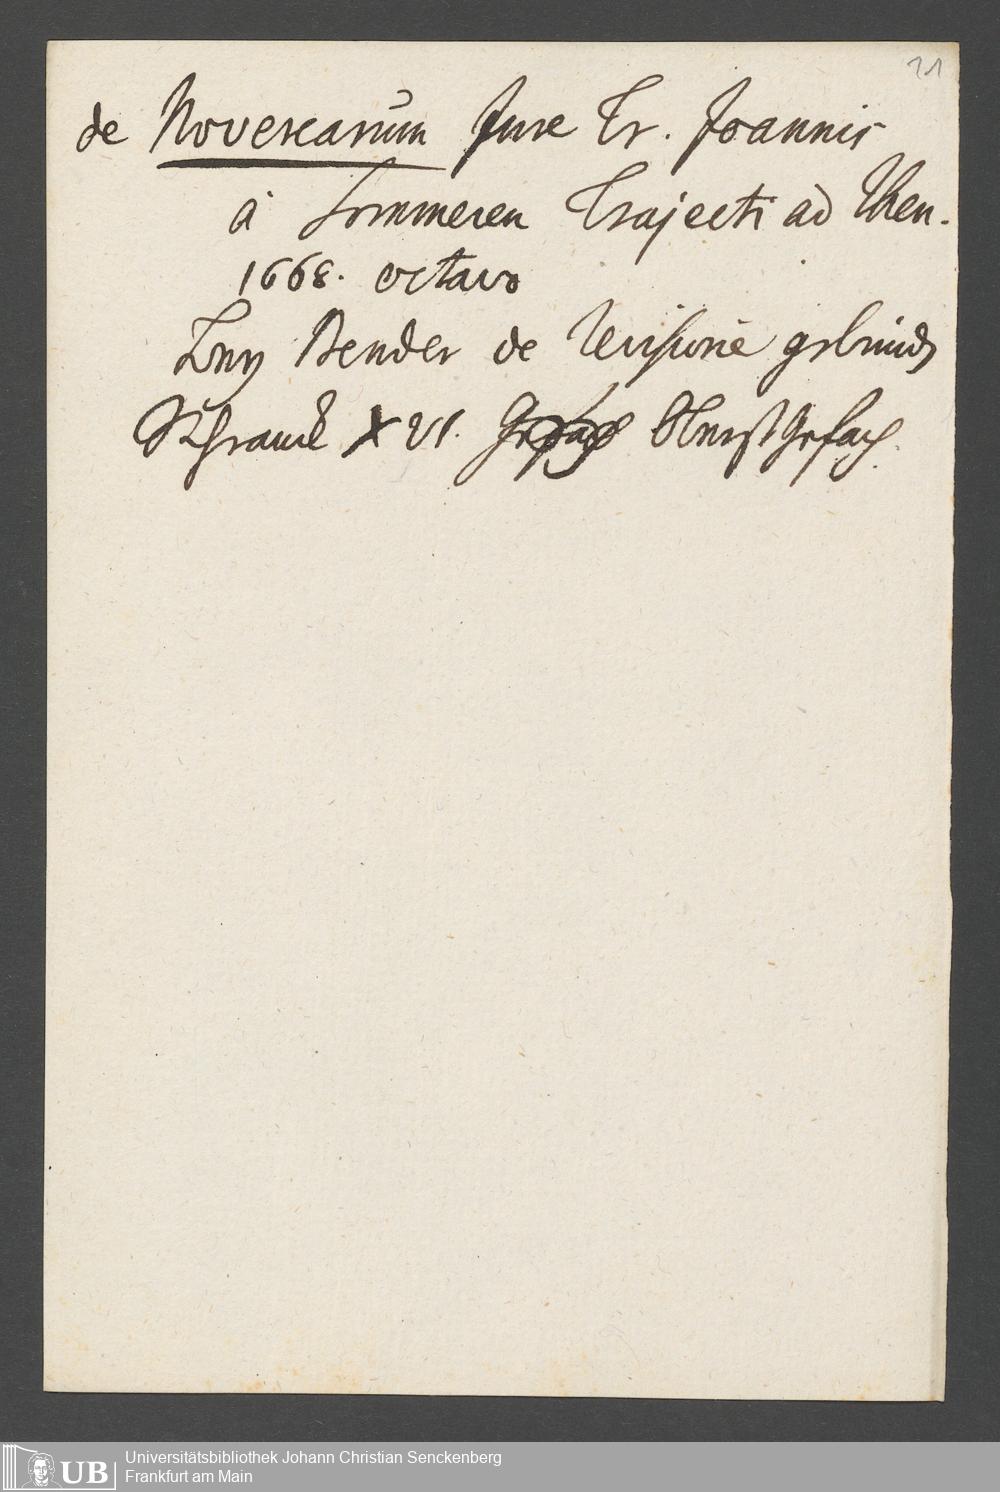 21
de Novercarum Jure Tr. Joannis
à Someren Trajecti ad Rhen.
1668. octavo
bey Bender de Revisione gebund
Schranck XVI. Oberst Gefach.
Universitätsbibliothek Johann Christian Senckenberg
Frankfurt am Main
UB